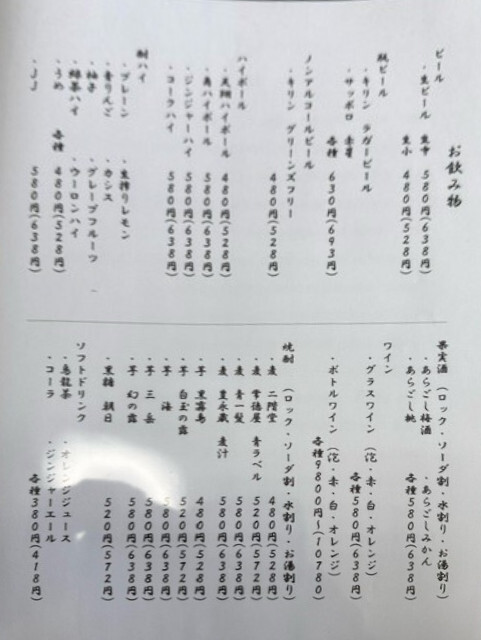 お飲み物
ビール
・生ビール 生中 580円(638円)
生小 480円(528円)
瓶ビール
・キリン ラガービール
・サッポロ 赤星
各種 630円(693円)
ノンアルコールビール
・キリン グリーンズフリー
480円(528円)
ハイボール
・天翔ハイボール 480円(528円)
・角ハイボール 580円(638円)
・ジンジャーハイ 580円(638円)
・コークハイ 580円(638円)
酎ハイ
・プレーン ・生搾りレモン
・青りんご ・カシス
・柚子 ・グレープフルーツ
・緑茶ハイ ・ウーロンハイ
・うめ 各種 480円(528円)
・JJ 580円(638円)
果実酒 (ロック・ソーダ割・水割り・お湯割り)
・あらごし梅酒 ・あらごしみかん
・あらごし桃 各種580円(638円)
ワイン
・グラスワイン (泡・赤・白・オレンジ)
各種580円(638円)
・ボトルワイン (泡・赤・白・オレンジ)
各種9800円〜(10780)
焼酎 (ロック・ソーダ割・水割り・お湯割り)
・麦 二階堂 480円(528円)
・麦 常徳屋 青ラベル 520円(572円)
・麦 青一髪 580円(638円)
・麦 豊永蔵 麦汁 580円(638円)
・芋 黒霧島 480円(528円)
・芋 白玉の露 520円(572円)
・芋 海 580円(638円)
・芋 三岳 580円(638円)
・芋 幻の露 580円(638円)
・黒糖 朝日 520円(572円)
ソフトドリンク
・烏龍茶 ・オレンジジュース
・コーラ ・ジンジャーエール
各種380円(418円)